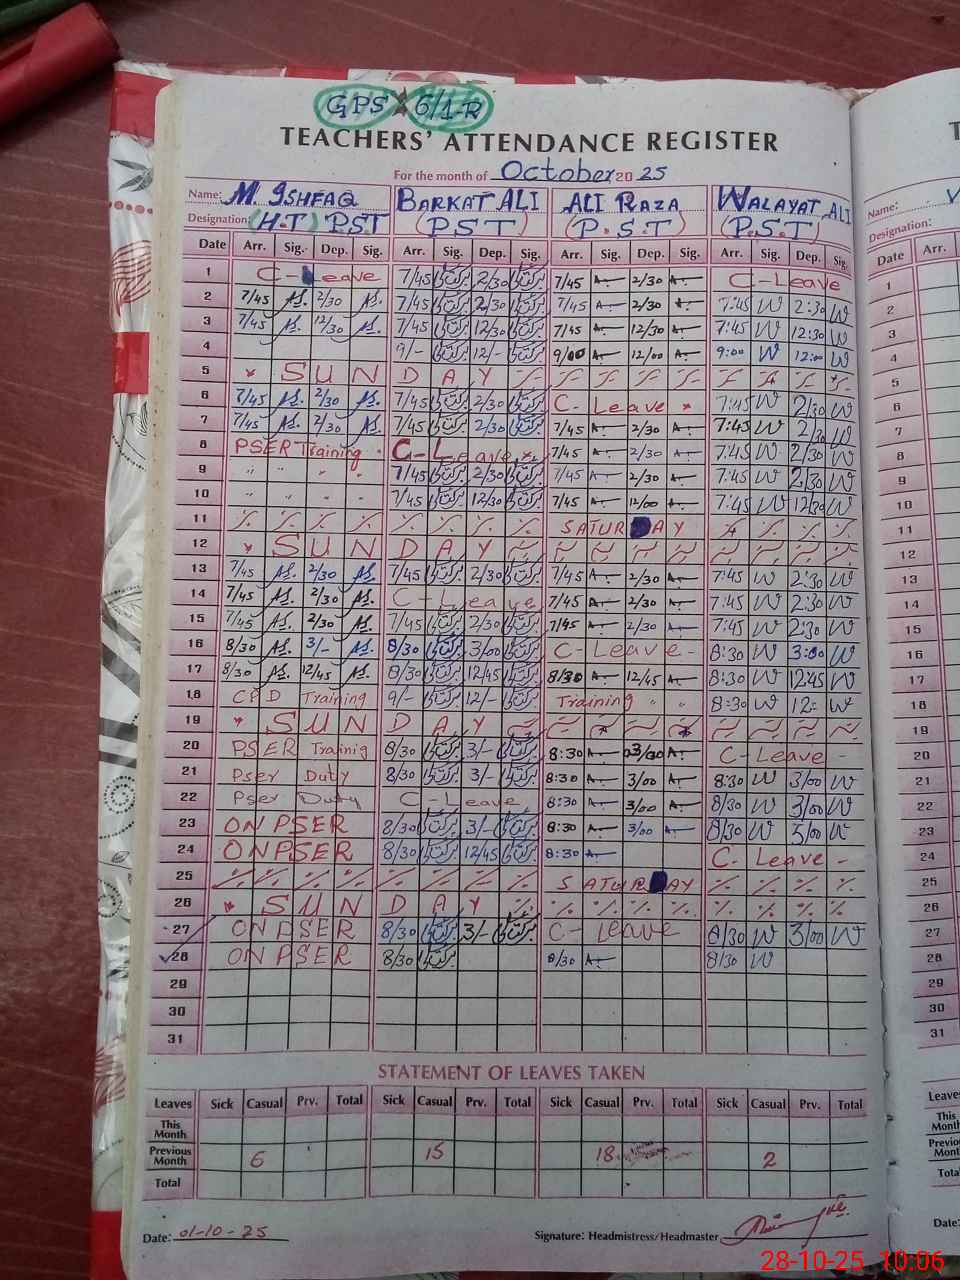 GPS 6/1-R
TEACHERS' ATTENDANCE REGISTER
For the month of October 20 25
Name: M. ISHFAQ BARKAT ALI ALI RAZA WALAYAT ALI
Designation: (H.T) PST (PST) (P.S.T) (P.S.T)
Date Arr. Sig. Dep. Sig. Arr. Sig. Dep. Sig. Arr. Sig. Dep. Sig. Arr. Sig. Dep. Sig.
1 C-Leave 7/45 برکت 2/30 برکت 7/45 A. 2/30 A. C-Leave
2 7/45 AS. 2/30 AS. 7/45 برکت 2/30 برکت 7/45 A. 2/30 A. 7:45 W 2:30 W
3 7/45 AS. 12/30 AS. 7/45 برکت 12/30 برکت 7/45 A. 12/30 A. 7:45 W 12:30 W
4 9/- برکت 12/- برکت 9/00 A. 12/00 A. 9:00 W 12:00 W
5 SUNDAY
6 7/45 AS. 2/30 AS. 7/45 برکت 2/30 برکت C-Leave 7:45 W 2/30 W
7 7/45 AS. 2/30 AS. 7/45 برکت 2/30 برکت 7/45 A. 2/30 A. 7:45 W 2/30 W
8 PSER Training C-Leave 7/45 A. 2/30 A. 7:45 W 2/30 W
9 " " " " 7/45 برکت 2/30 برکت 7/45 A. 2/30 A. 7:45 W 2:30 W
10 " " " " 7/45 برکت 12/30 برکت 7/45 A. 12/00 A. 7:45 W 12/30 W
11 SATURDAY
12 SUNDAY
13 7/45 AS. 2/30 AS. 7/45 برکت 2/30 برکت 7/45 A. 2/30 A. 7:45 W 2:30 W
14 7/45 AS. 2/30 AS. C-Leave 7/45 A. 2/30 A. 7:45 W 2:30 W
15 7/45 AS. 2/30 AS. 7/45 برکت 2/30 برکت 7/45 A. 2/30 A. 7:45 W 2:30 W
16 8/30 AS. 3/- AS. 8/30 برکت 3/00 برکت C-Leave- 8:30 W 3:00 W
17 8/30 AS. 12/45 AS. 8/30 برکت 12/45 برکت 8/30 A. 12/45 A. 8:30 W 12:45 W
18 CPD Training 9/- برکت 12/- برکت Training " " 8:30 W 12: W
19 SUNDAY
20 PSER Trainig 8/30 برکت 3/- برکت 8:30 A. 03/00 A. C-Leave-
21 Pser Duty 8/30 برکت 3/- برکت 8:30 A. 3/00 A. 8:30 W 3/00 W
22 Pser Duty C-Leave 8:30 A. 3/00 A. 8/30 W 3/00 W
23 ON PSER 8/30 برکت 3/- برکت 8:30 A. 3/00 A. 8/30 W 3/00 W
24 ON PSER 8/30 برکت 12/45 برکت 8:30 A. C-Leave-
25 SATURDAY
26 SUNDAY
27 ON PSER 8/30 برکت 3/- برکت C-Leave 8/30 W 3/00 W
28 ON PSER 8/30 برکت 8/30 A. 8/30 W
29
30
31
STATEMENT OF LEAVES TAKEN
Leaves Sick Casual Prv. Total Sick Casual Prv. Total Sick Casual Prv. Total Sick Casual Prv. Total
This Month
Previous Month 6 15 18 2
Total
Date: 01-10-25 Signature: Headmistress/Headmaster
Name:
Designation:
Date Arr.
1
2
3
4
5
6
7
8
9
10
11
12
13
14
15
16
17
18
19
20
21
22
23
24
25
26
27
28
29
30
31
Leaves
This Month
Total
Date:
28-10-25 10:06